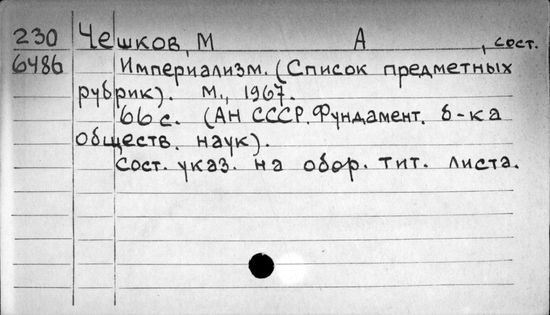 230 Чешков, М А , сост.
6486 Империализм. (Список предметных
рубрик). М., 1967.
66 с. (АН СССР. Фундамент. б-ка
обществ. наук).
Сост. указ. на обор. тит. листа.